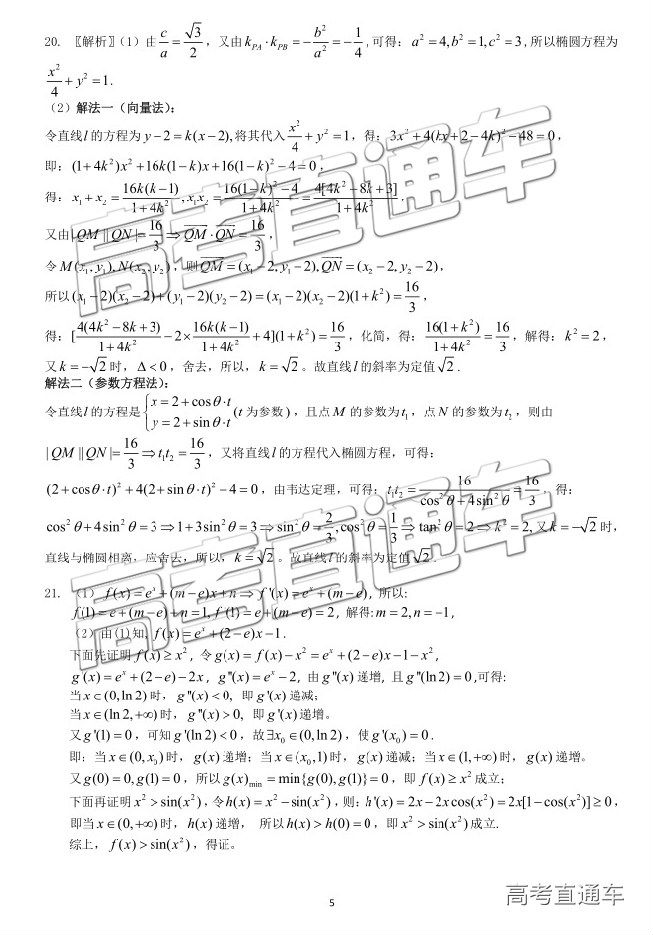 20. 〖解析〗(1) 由 c/a = √3/2 ，又由 k_PA · k_PB = −b²/a² = −1/4 ,可得：a² = 4, b² = 1, c² = 3 ,所以椭圆方程为
x²/4 + y² = 1 .
(2) 解法一（向量法）：
令直线 l 的方程为 y − 2 = k(x − 2), 将其代入 x²/4 + y² = 1，得：3x² + 4(kx + 2 − 4k)² − 48 = 0 ，
即：(1 + 4k²)x² + 16k(1 − k)x + 16(1 − k)² − 4 = 0 ，
得：x₁ + x₂ = 16k(k − 1)/(1 + 4k²) , x₁x₂ = (16(1 − k)² − 4)/(1 + 4k²) = 4[4k² − 8k + 3]/(1 + 4k²) .
又由 |QM||QN| = 16/3 ⇒ QM · QN = 16/3 ，
令 M(x₁, y₁), N(x₂, y₂) ，则 QM = (x₁ − 2, y₁ − 2), QN = (x₂ − 2, y₂ − 2) ，
所以 (x₁ − 2)(x₂ − 2) + (y₁ − 2)(y₂ − 2) = (x₁ − 2)(x₂ − 2)(1 + k²) = 16/3 ，
得：[4(4k² − 8k + 3)/(1 + 4k²) − 2 × 16k(k − 1)/(1 + 4k²) + 4](1 + k²) = 16/3 ，化简，得：16(1 + k²)/(1 + 4k²) = 16/3 ，解得：k² = 2 ，
又 k = −√2 时，Δ < 0 ，舍去，所以，k = √2 。故直线 l 的斜率为定值 √2 .
解法二（参数方程法）：
令直线 l 的方程是 { x = 2 + cosθ · t
y = 2 + sinθ · t (t 为参数) ，且点 M 的参数为 t₁ ，点 N 的参数为 t₂ ，则由
|QM||QN| = 16/3 ⇒ t₁t₂ = 16/3 ，又将直线 l 的方程代入椭圆方程，可得：
(2 + cosθ · t)² + 4(2 + sinθ · t)² − 4 = 0 ，由韦达定理，可得：t₁t₂ = 16/(cos²θ + 4sin²θ) = 16/3 ，得：
cos²θ + 4sin²θ = 3 ⇒ 1 + 3sin²θ = 3 ⇒ sin²θ = 2/3, cos²θ = 1/3 ⇒ tan²θ = 2 ⇒ k² = 2, 又 k = −√2 时，
直线与椭圆相离，应舍去，所以，k = √2 。故直线 l 的斜率为定值 √2 .
21. (1) f(x) = eˣ + (m − e)x + n ⇒ f'(x) = eˣ + (m − e), 所以:
f(1) = e + (m − e) + n = 1, f'(1) = e + (m − e) = 2, 解得: m = 2, n = −1,
(2) 由(1)知, f(x) = eˣ + (2 − e)x − 1 .
下面先证明 f(x) ≥ x² ，令 g(x) = f(x) − x² = eˣ + (2 − e)x − 1 − x² ,
g'(x) = eˣ + (2 − e) − 2x , g''(x) = eˣ − 2 , 由 g''(x) 递增, 且 g''(ln 2) = 0 ,可得:
当 x ∈ (0, ln 2) 时，g''(x) < 0, 即 g'(x) 递减；
当 x ∈ (ln 2, +∞) 时，g''(x) > 0, 即 g'(x) 递增。
又 g'(1) = 0 ，可知 g'(ln 2) < 0 ，故 ∃x₀ ∈ (0, ln 2) ，使 g'(x₀) = 0 .
即：当 x ∈ (0, x₀) 时，g(x) 递增；当 x ∈ (x₀, 1) 时，g(x) 递减；当 x ∈ (1, +∞) 时，g(x) 递增。
又 g(0) = 0, g(1) = 0 ，所以 g(x)min = min{g(0), g(1)} = 0 ，即 f(x) ≥ x² 成立；
下面再证明 x² > sin(x²) ，令 h(x) = x² − sin(x²) ，则：h'(x) = 2x − 2x cos(x²) = 2x[1 − cos(x²)] ≥ 0 ，
即当 x ∈ (0, +∞) 时，h(x) 递增， 所以 h(x) > h(0) = 0 ，即 x² > sin(x²) 成立.
综上，f(x) > sin(x²) ，得证。
5
高考直通车
高考直通车
高考直通车